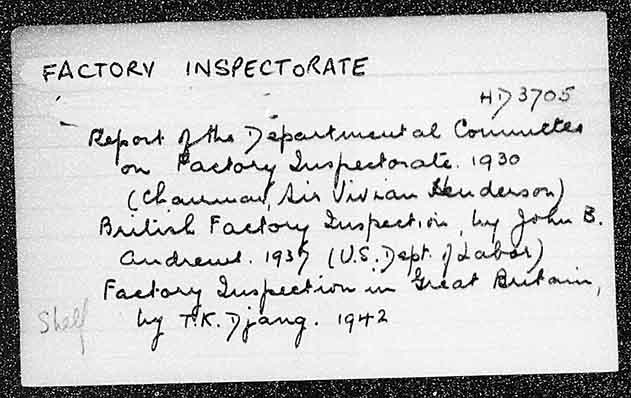 FACTORY INSPECTORATE
HD 3705
Report of the Departmental Committee
on Factory Inspectorate. 1930
(Chairman, Sir Vivian Henderson)
British Factory Inspection, by John B.
Andrews. 1937 (U.S. Dept. of Labor)
Factory Inspection in Great Britain,
Shelf by T.K. Djang. 1942